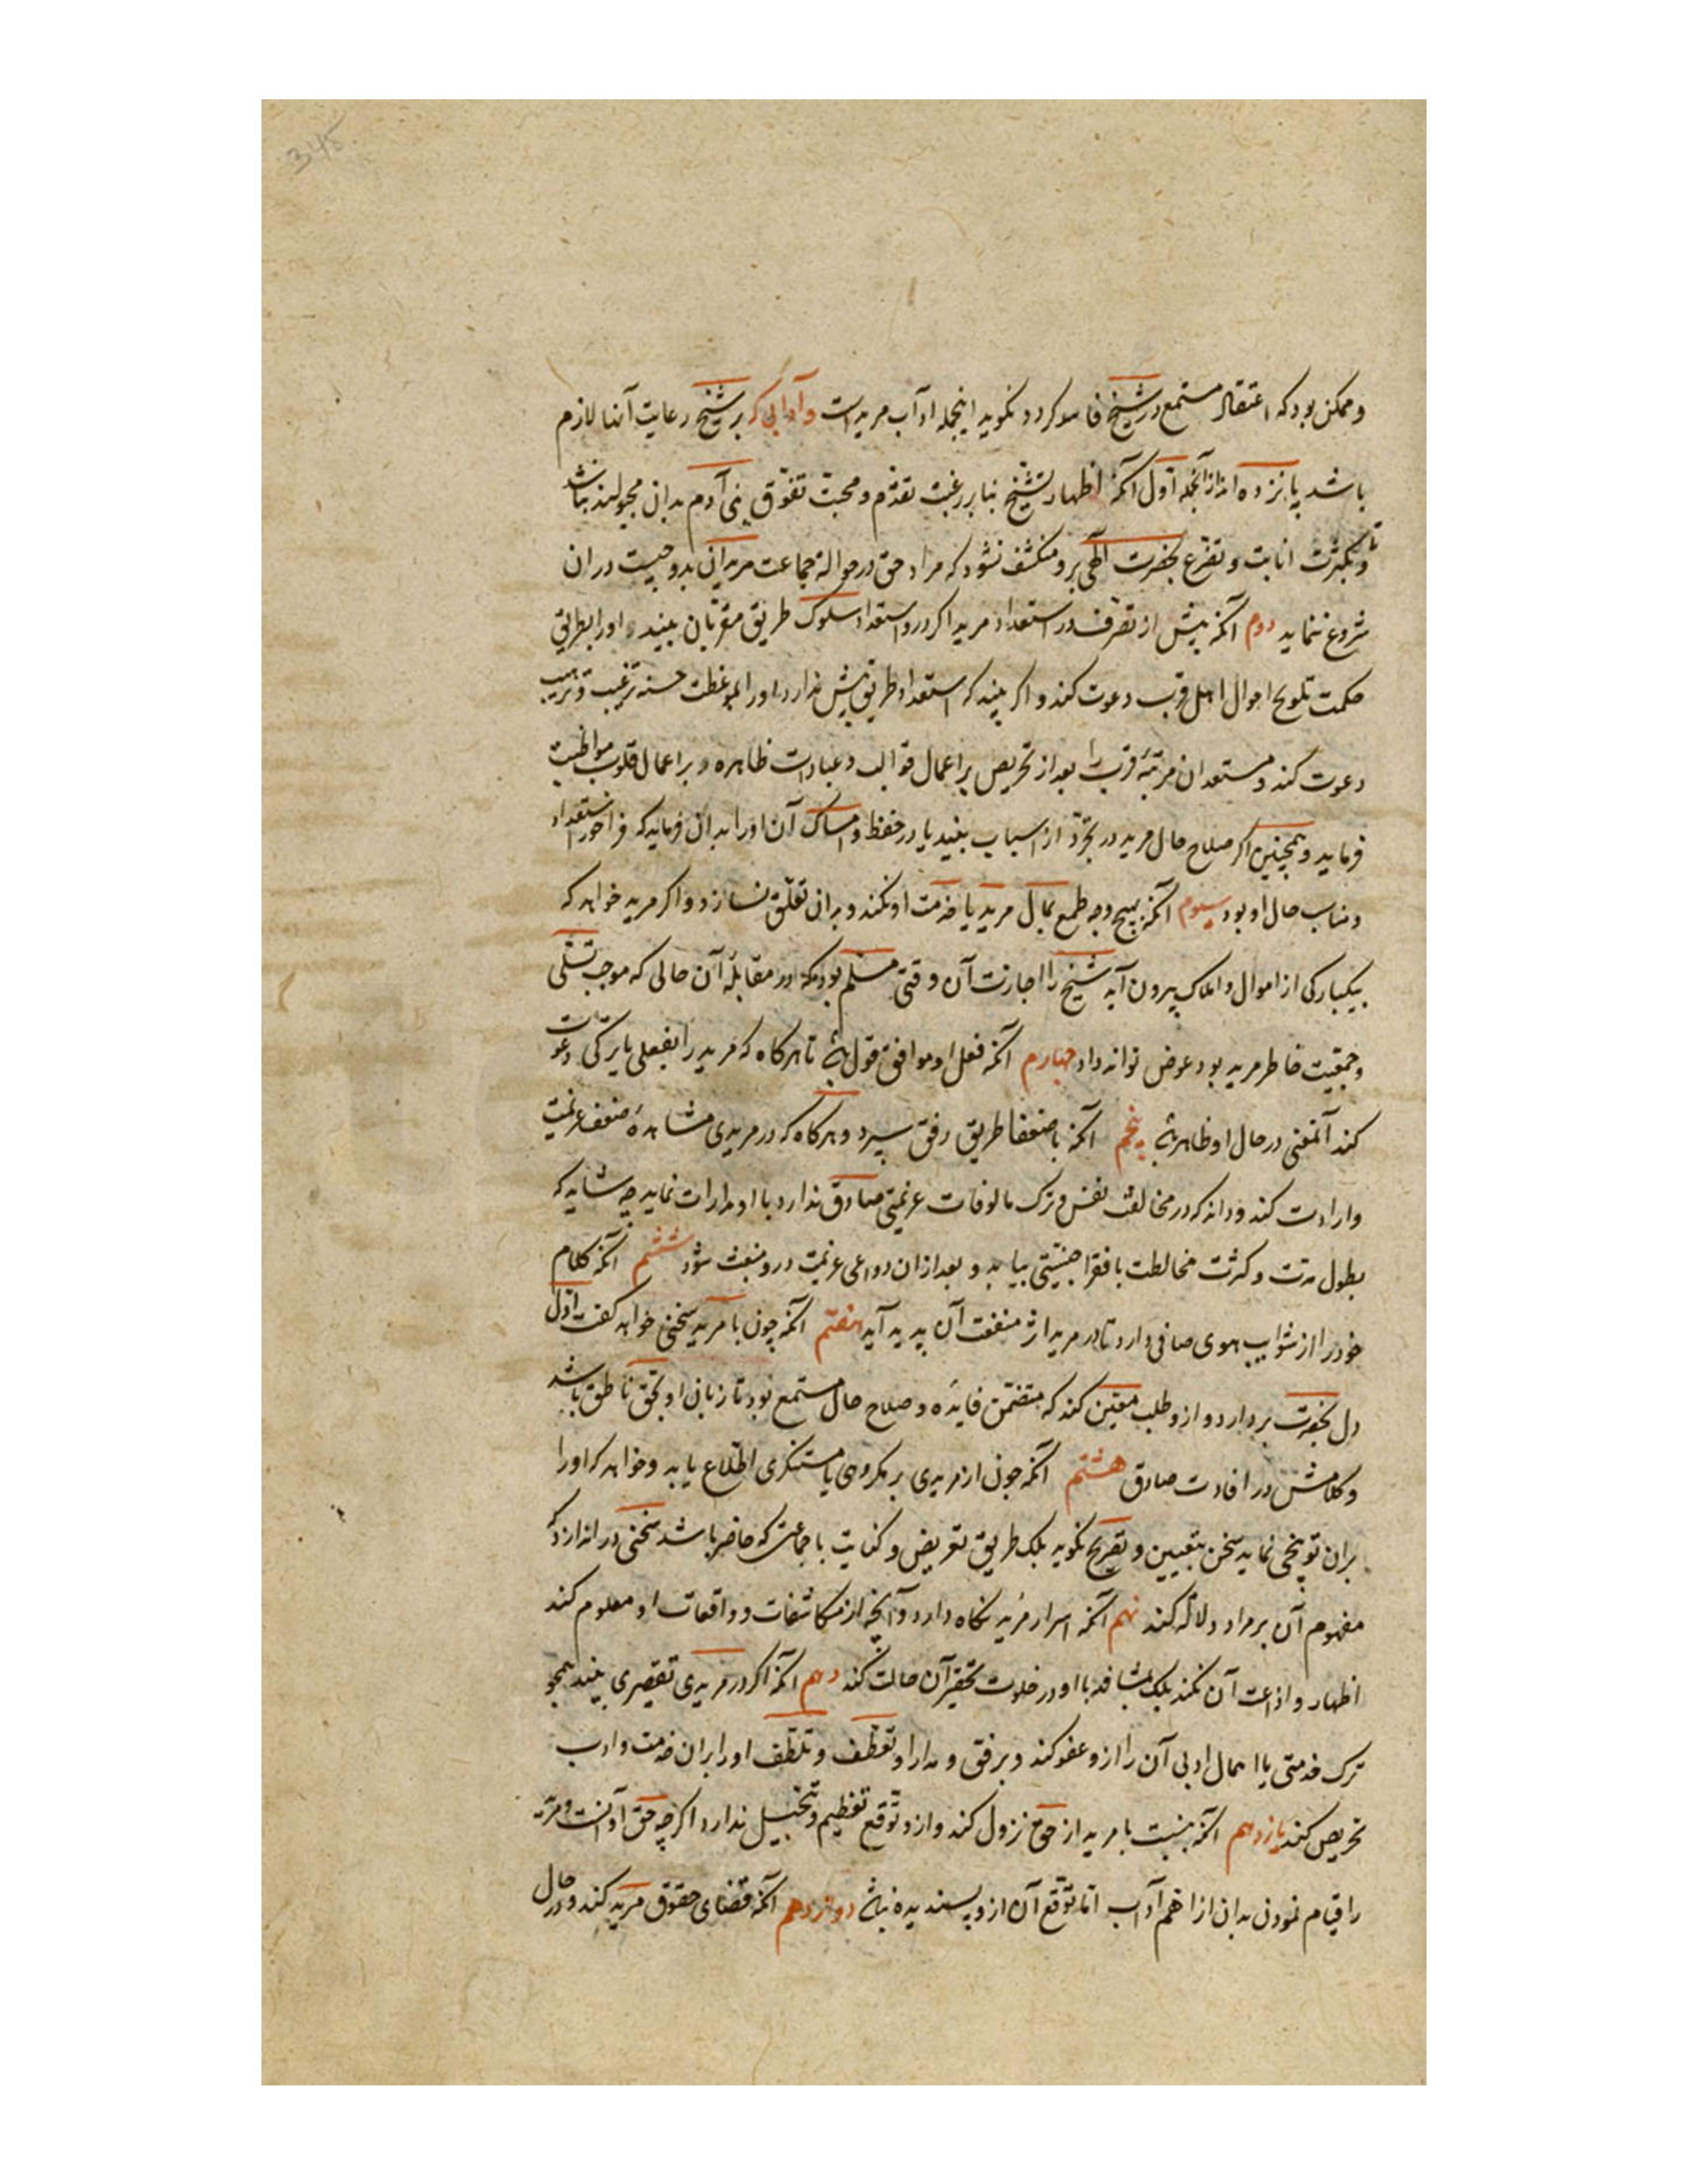 345
و ممکن بود که اعتقاد مستمع در شیخ فاسد کردد نکوید اینجمله آداب مریدست و آدابی که بر شیخ رعایت آنها لازم
باشد پانزده اند از آنجمله اول آنکه اظهار تشیخ بنا بر رغبت تقدم و محبت تفوق بنی آدم بدان مجبولند نباشد
و تا بکثرت انابت و تضرع بحضرت الهی برو منکشف نشود که مراد حق در حوالهٔ جماعت مریدان بدو چیست در ان
شروع ننماید دوم آنکه پیش از تصرف در استعداد مرید اکر درو استعداد سلوک طریق مقربان بیند اورا بطریق
حکمت تلویح احوال اهل قرب دعوت کند و اکر بیند که استعداد طریق پیش ندارد اورا بموعظت حسنه ترغیب و ترهیب
دعوت کند و مستعدان مرتبهٔ قرب را بعد از تحریص بر اعمال قوالب و عبادات ظاهره بر اعمال قلوب مواظبت
فرماید و همچنین اکر صلاح حال مرید در تجرد از اسباب بیند یا در حفظ و امساک آن اورا بدان فرماید که فراخور استعداد
و مناسب حال او بود سیوم آنکه بهیچ وجه طمع بمال مرید یا خدمت او نکند و بدان تعلق نسازد و اکر مرید خواهد که
بیکبارکی از اموال و املاک بیرون آید شیخ را اجازت آن وقتی مسلم بود که در مقابلهٔ آن حالی که موجب تسلی
و جمعیت خاطر مرید بود عوض تواند داد چهارم آنکه فعل او موافق قول باشد تا هرکاه که مرید را بفعلی یا ترکی دعوت
کند آنمعنی در حال او ظاهر باشد پنجم آنکه با ضعفا طریق رفق سپرد و هرکاه که در مریدی مشاهدهٔ ضعف عزیمت
و ارادت کند و داند که در مخالفت نفس و ترک مالوفات عزیمتی صادق ندارد با او مدارات نماید چه شاید که
بطول مدت و کثرت مخالطت با فقرا جنسیتی بیابد و بعد ازان دواعی عزیمت درو منبعث شود ششم آنکه کلام
خود را از شوایب هوی صافی دارد تا در مرید اثر منفعت آن پدید آید هفتم آنکه چون با مرید سخنی خواهد کفت اول
دل بحضرت بردارد و ازو طلب معنی کند که متضمن فایده و صلاح حال مستمع بود تا زبان او بحق ناطق باشد
و کلامش در افادت صادق هشتم آنکه چون از مریدی بر مکروهی یا مستنکری اطلاع یابد و خواهد که اورا
بران توبیخی نماید سخن بتعیین و تصریح نکوید بلک طریق تعریض و کنایت با جماعتی که حاضر باشند سخنی در اندازد که
مفهوم آن بر مراد دلاله کند نهم آنکه اسرار مرید نکاه دارد و آنچه از مکاشفات و واقعات او معلوم کند
اظهار و اذاعت آن نکند بلک بمشافهه با او در خلوت تحقیر آن حالت کند دهم آنکه اکر در مریدی تقصیری بیند همچو
ترک خدمتی یا اهمال ادبی آن را ازو عفو کند و برفق و مدارا و تعطف و تلطف اورا بران خدمت و ادب
تحریص کند یازدهم آنکه بنسبت با مرید از حق نزول کند و ازو توقع تعظیم و تبجیل ندارد اکرچه حق آنست و مرید
را قیام نمودن بدان از اهم آداب اما توقع آن ازو پسندیده نباشد دوازدهم آنکه قضای حقوق مرید کند و در حال